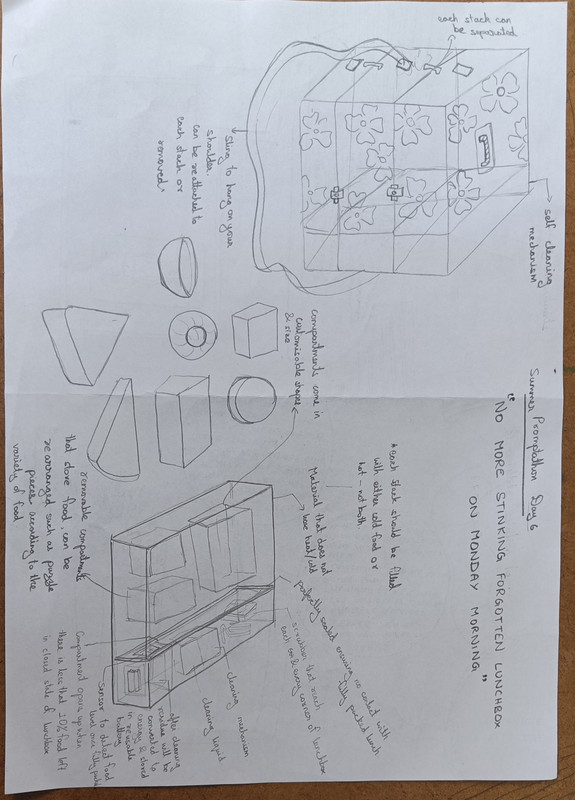 Summer Promptathon Day 6
"NO MORE STINKING FORGOTTEN LUNCHBOX
ON MONDAY MORNING"
each stack can
be separated
self cleaning
mechanism
sling to hang on your
shoulder.
can be reattached to
each stack or
removed.
compartments come in
customisable shapes
& size
* each stack should be filled
with either cold food or
hot - not both.
Material that does not
lose heat/cold
perfectly sealed ensuring no contact with
fully packed lunch
scrubber that reach
each and every corner of lunchbox
cleaning mechanism
cleaning liquid
after cleaning
residue will be
converted to
energy & stored
in reusable
battery
Sensor to detect food
level once fully packed
Compartment opens up when
there is less that 20% food left
in closed state of lunchbox
removable compartments
that store food, can be
rearranged such as puzzle
pieces according to the
variety of food